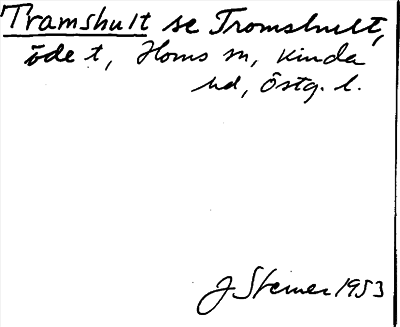 Tramshult se Tromshult,
öde t, Horns sn, Kinda
hd, Östg. l.
J Steiner 1953